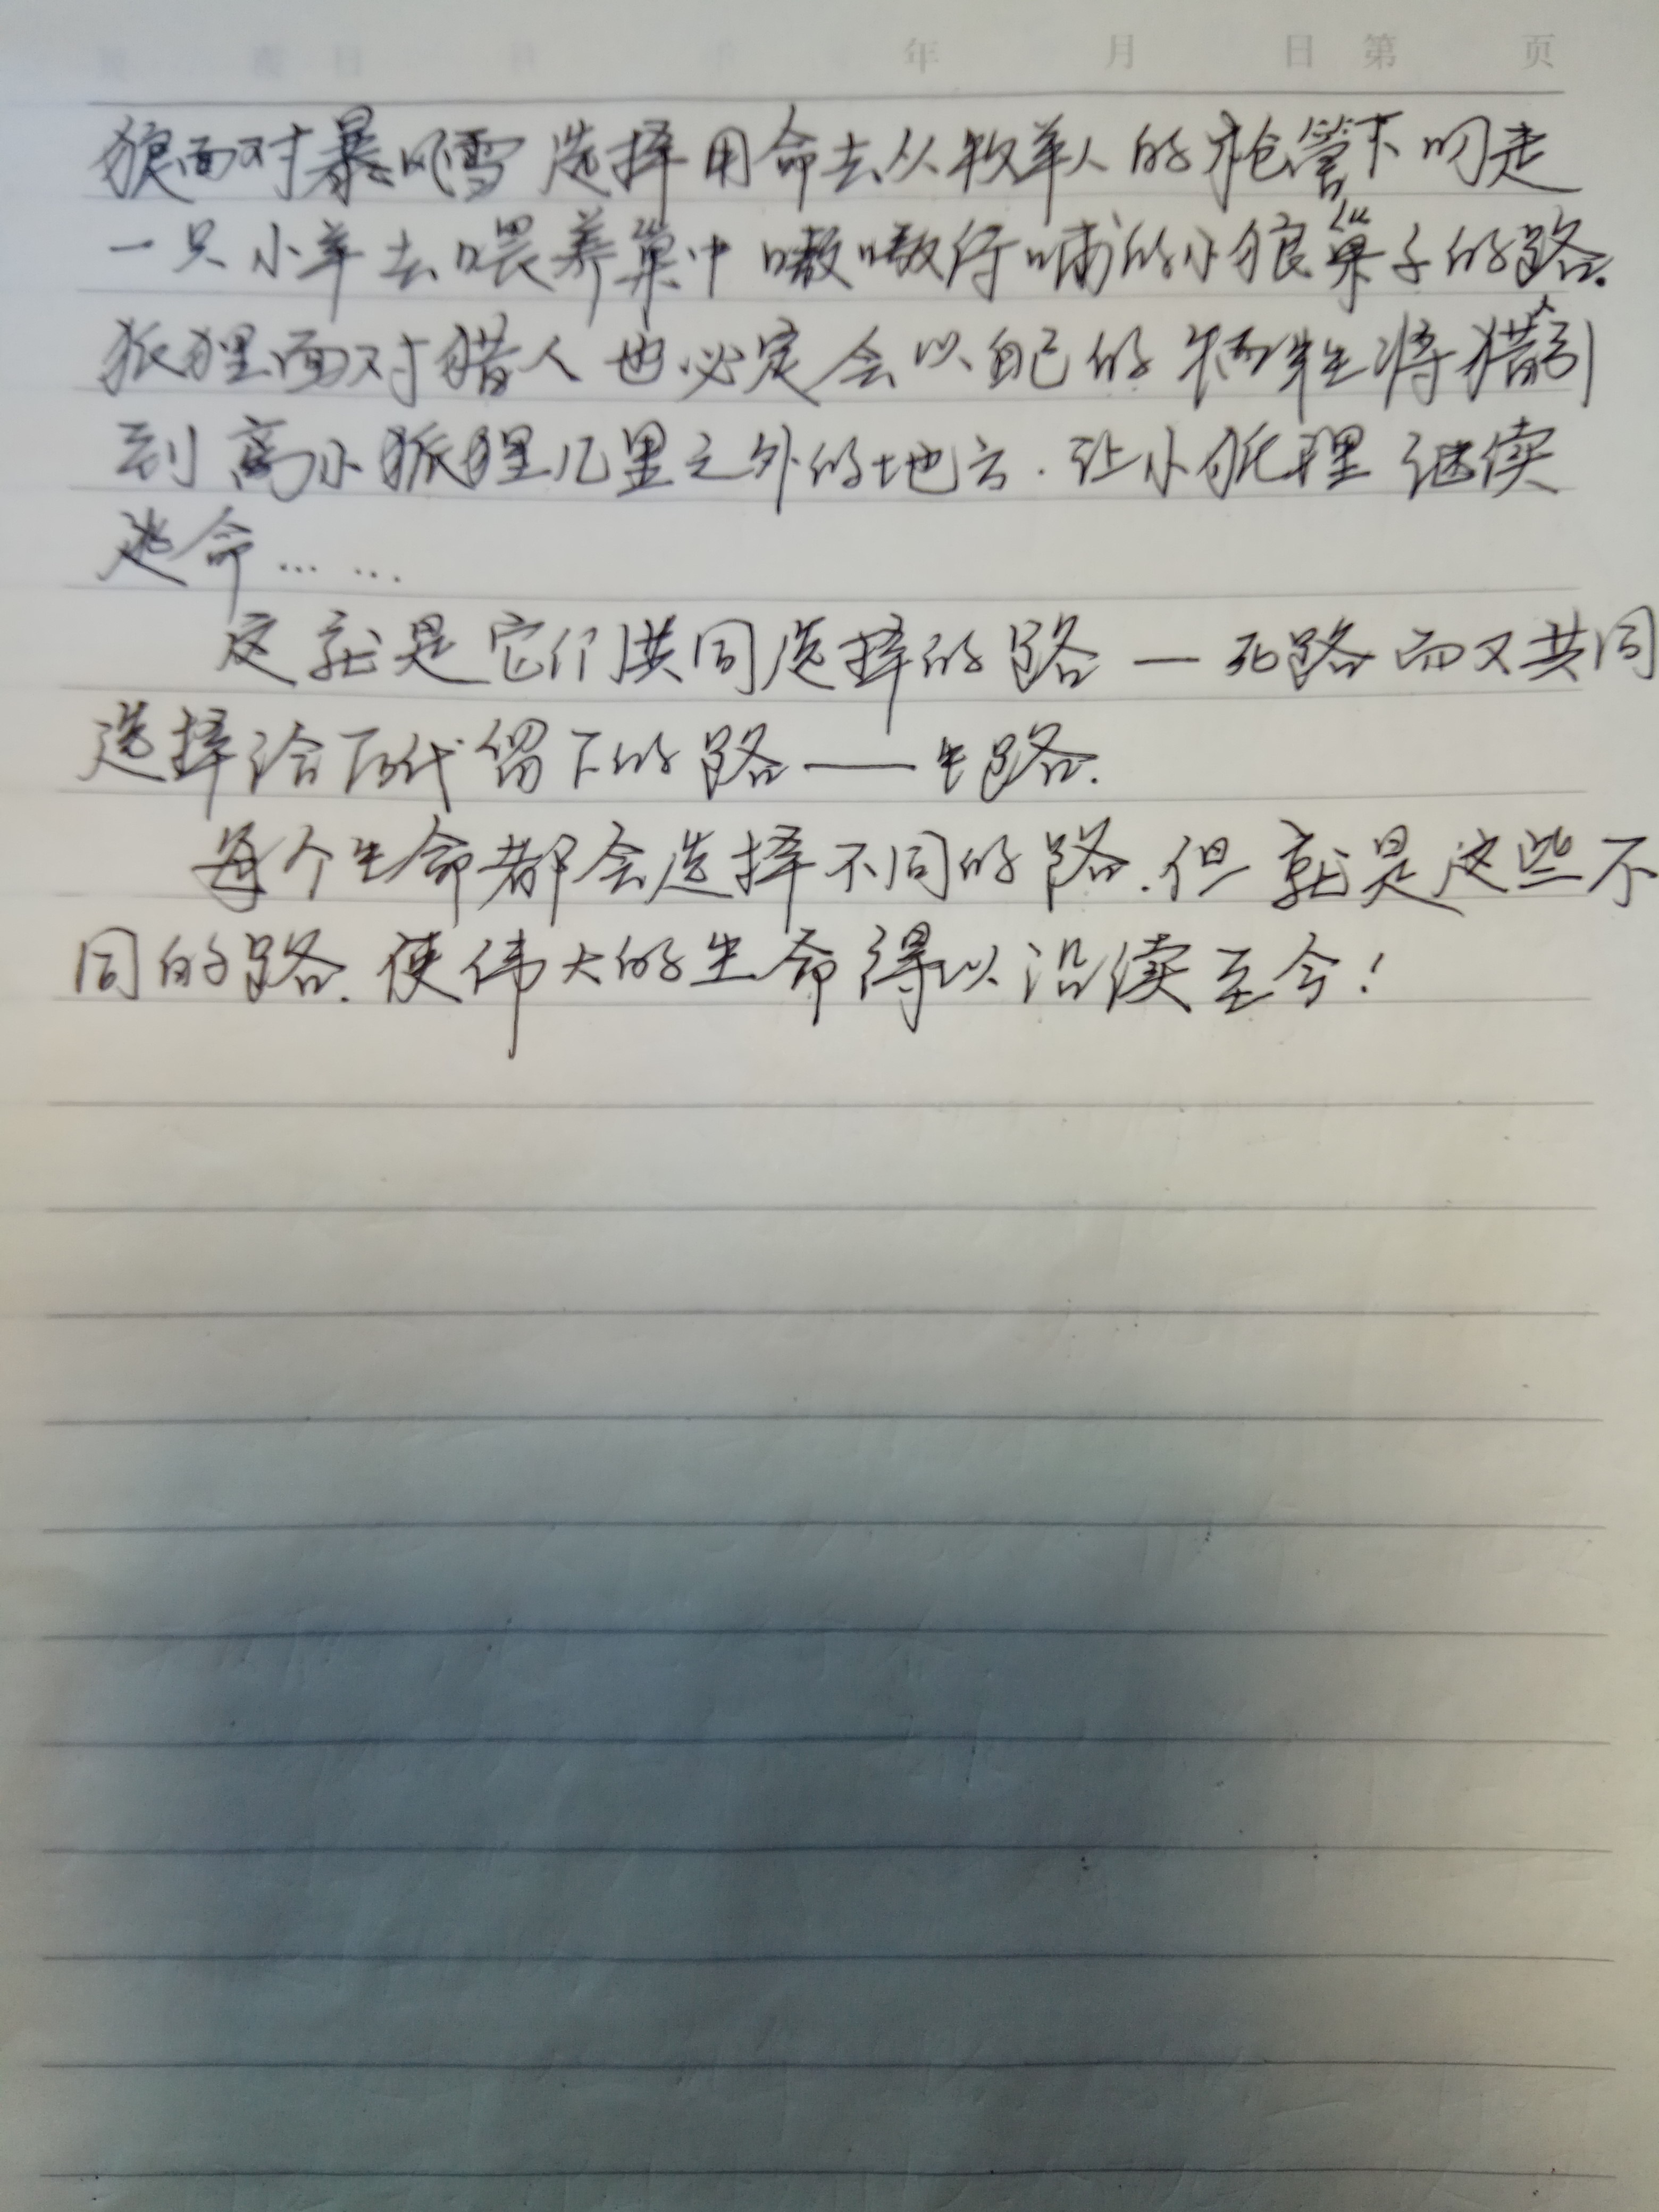 年 月 日 第 页
狼面对暴风雪选择用命去从牧羊人的枪管下叼走
一只小羊去喂养巢中嗷嗷待哺的小狼巢子的路.
狐狸面对猎人也必定会以自己的牺牲将猎人引
到离小狐狸几里之外的地方.让小狐狸继续
逃命……
这就是它们共同选择的路—死路而又共同
选择给后代留下的路——生路.
每个生命都会选择不同的路.但就是这些不
同的路.使伟大的生命得以沿续至今!